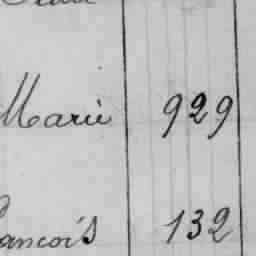 Marie 929
ancois 132